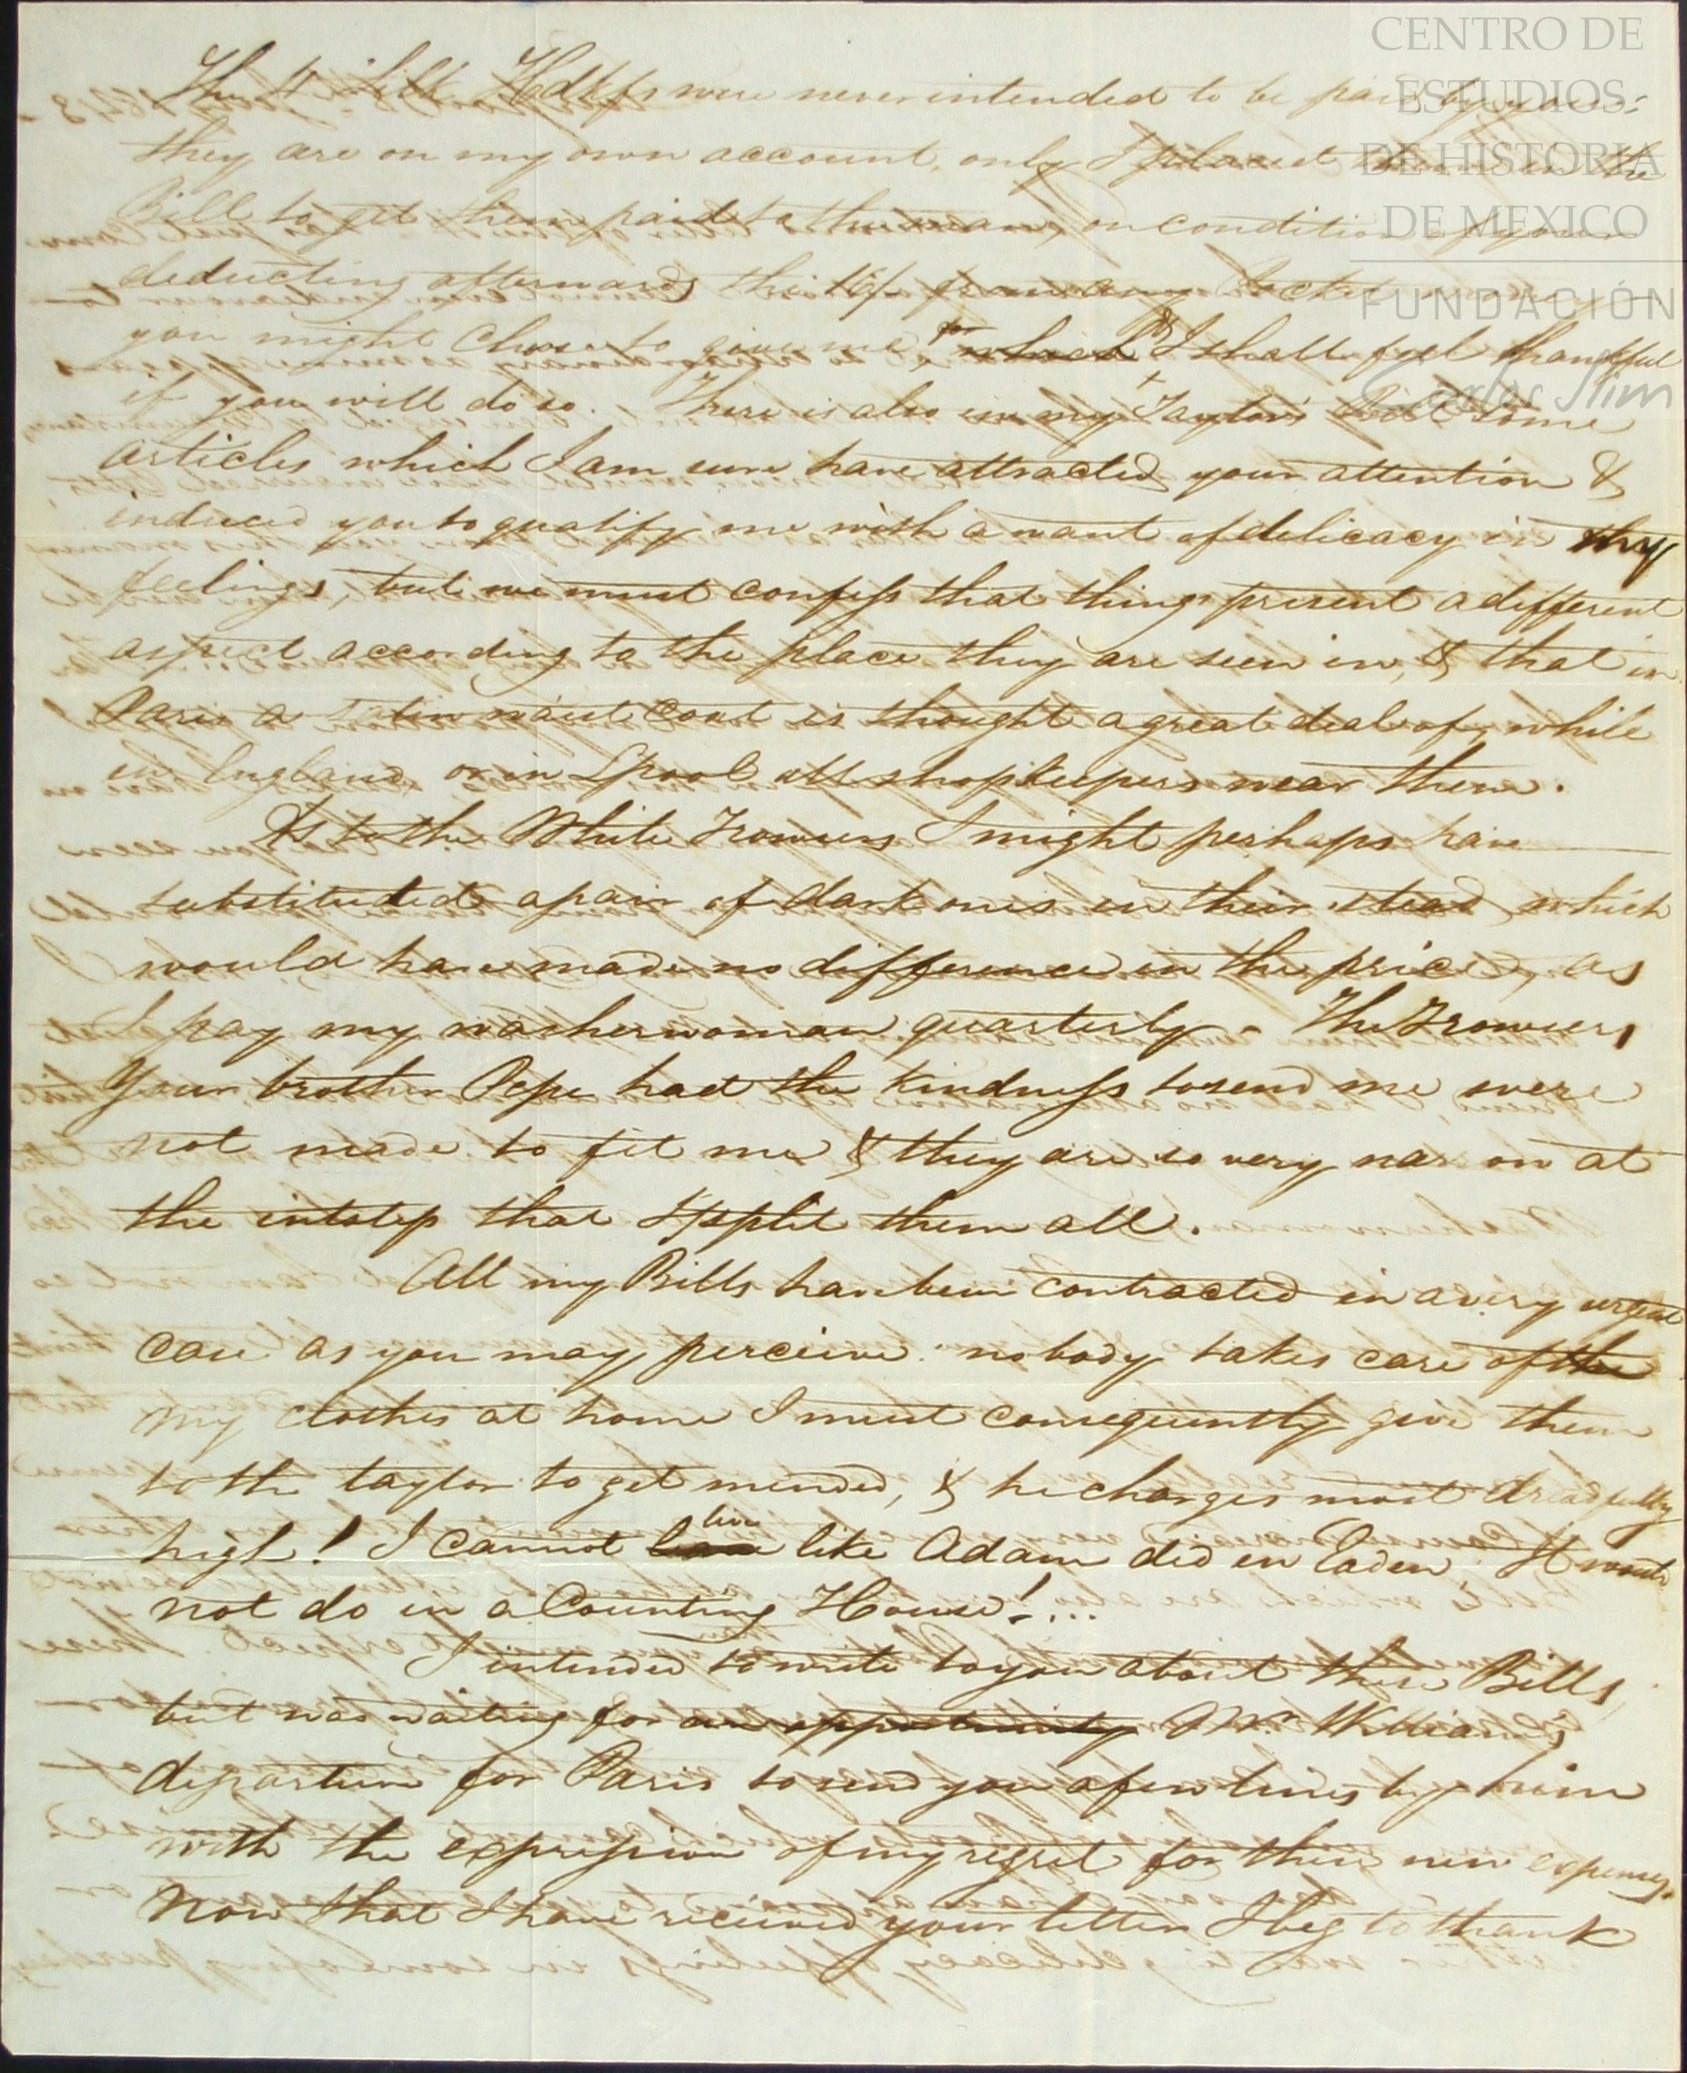 CENTRO DE
ESTUDIOS
DE HISTORIA
DE MEXICO
FUNDACIÓN
Carlos Slim
The 4 Silk Hdkfs were never intended to be paid by you:
they are on my own account, only I placed them in the
Bill to get them paid to the man, on condition of your
deducting afterwards the 16/- from any Pocket
you might chuse to give me, for which I shall feel thankful
if you will do so. There is also in my Taylor's Bill some
articles which I am sure have attracted your attention &
induced you to qualify me with a want of delicacy in my
feelings, but we must confess that things present a different
aspect according to the place they are seen in, & that in
Paris a Satin waist coat is thought a great deal of, while
in England, or in Lpool all shopkeepers wear them.
As to the White Trowsers I might perhaps have
substituted a pair of dark ones in their stead, which
would have made no difference in the price, as
I pay my washerwoman quarterly - The Trowsers
Your brother Pepe had the kindness to send me were
not made to fit me & they are so very narrow at
the intstep that I split them all.
All my Bills have been contracted in a very urgent
case as you may perceive: nobody takes care of the
my clothes at home I must consequently give them
to the taylor to get mended, & he charges most dreadfully
high! I cannot live like Adam did en Eaden. It would
not do in a Counting House!...
I intended to write to you about these Bills,
but was waiting for an opportunity Mr. Killian's
departure for Paris to send you a few lines by him
with the expression of my regret for these new expenses.
Now that I have received your letter I beg to thank